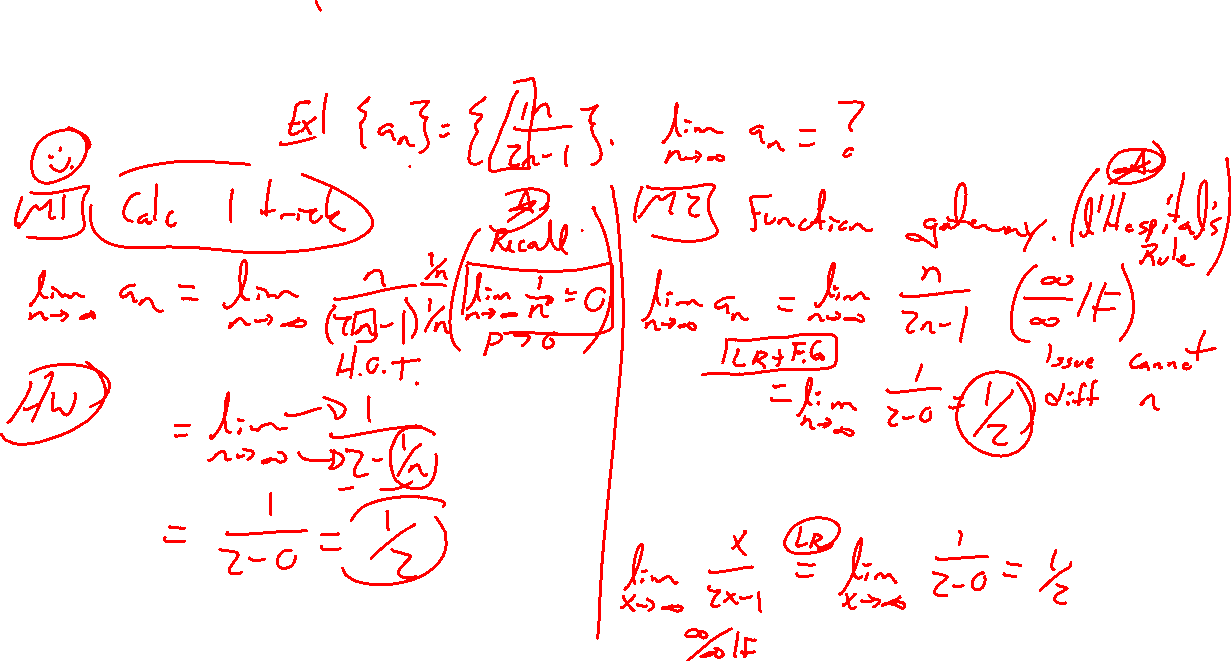 Ex1 {aₙ} = { n/(2n-1) }. lim n→∞ aₙ = ?
M1 Calc 1 trick
lim n→∞ aₙ = lim n→∞ n/(2n-1) · (1/n)/(1/n)
H.O.T.
(Recall lim n→∞ 1/nᵖ = 0
p > 0)
HW
= lim n→∞ 1/(2 - 1/n)
= 1/(2-0) = 1/2
M2 Function gateway. (l'Hospital's Rule)
lim n→∞ aₙ = lim n→∞ n/(2n-1) (∞/∞ IF)
issue cannot
diff n
LR + F.G.
= lim n→∞ 1/(2-0) = 1/2
lim x→∞ x/(2x-1) LR = lim x→∞ 1/(2-0) = 1/2
∞/∞ IF